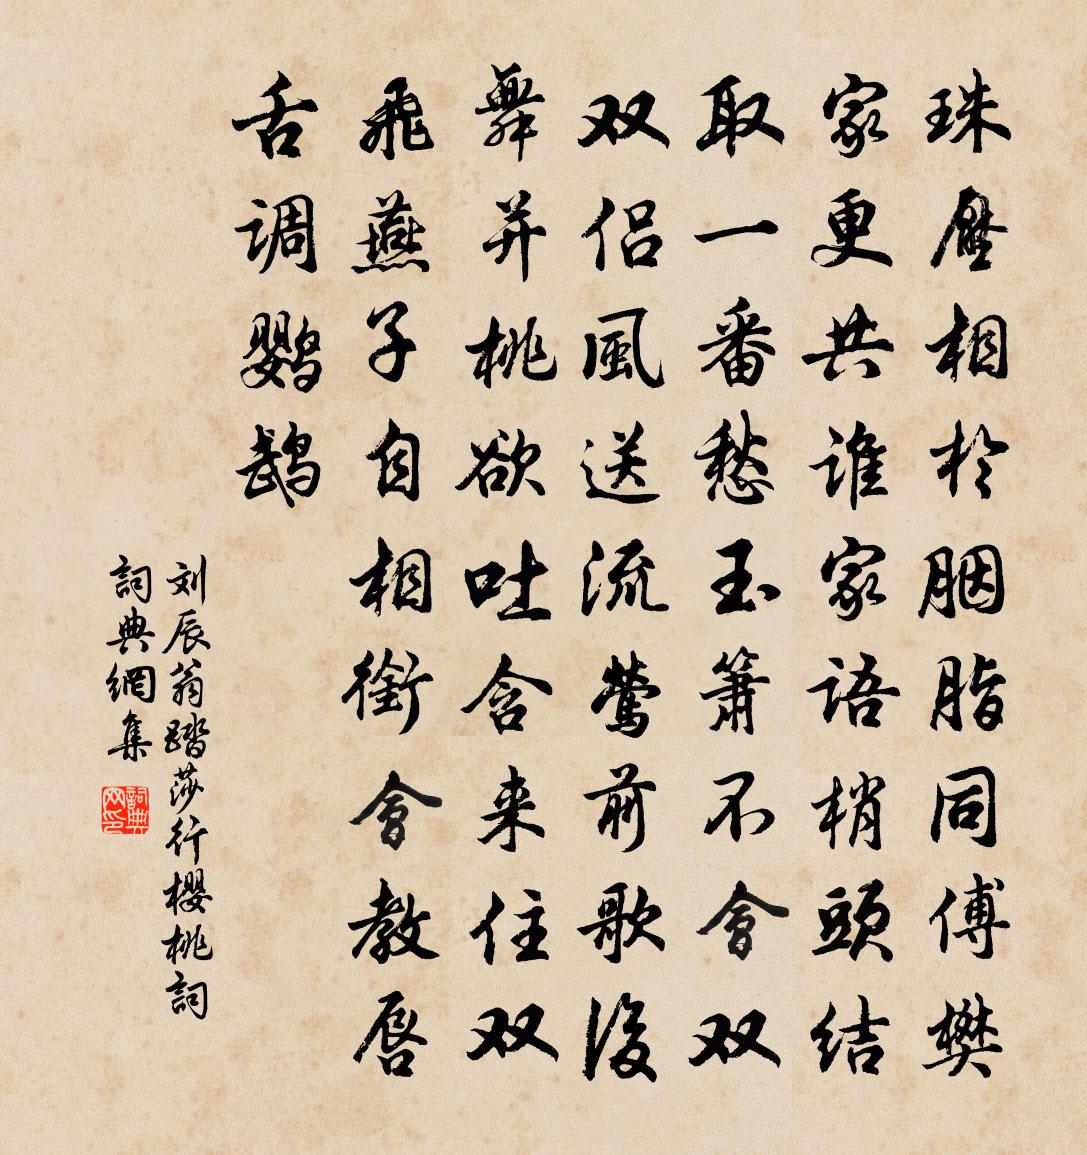 珠壓相於胭脂同傅樊
家更共谁家語梢頭结
取一番愁玉箫不會双
双侣風送流莺前歌後
舞并桃欲吐含来住双
飛燕子自相銜會教唇
舌调鹦鹉
刘辰翁踏莎行櫻桃詞
詞典網集
詞典网印